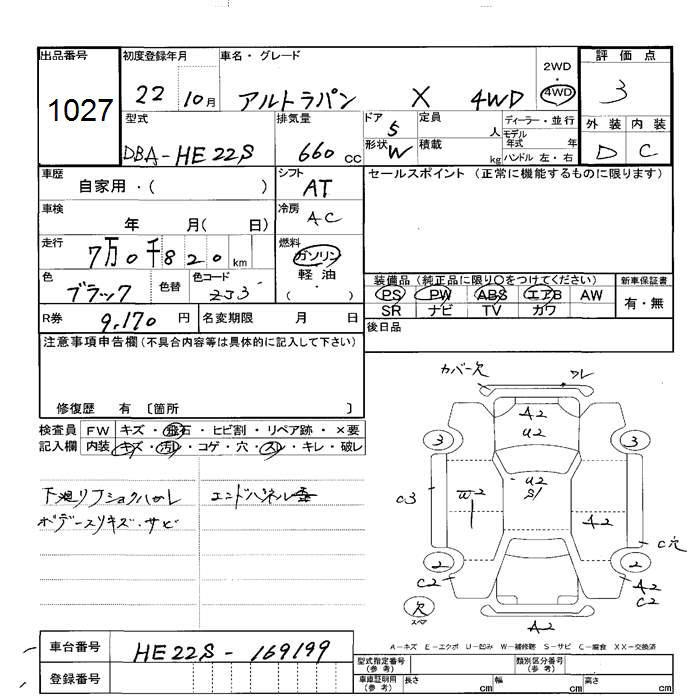 出品番号
1027
初度登録年月
22 10月
車名・グレード
アルトラパン X 4WD
2WD
・
4WD
評価点
3
外装 内装
D C
型式
DBA-HE22S
排気量
660 cc
ドア
5
形状
W
定員
人
積載
kg
ディーラー・並行
モデル年式 年
ハンドル 左・右
車歴
自家用・( )
シフト
AT
セールスポイント (正常に機能するものに限ります)
車検
年 月( 日)
冷房
AC
走行
7万0千820km
燃料
ガソリン
軽油
( ・ )
色
ブラック
色替
色コード
装備品 (純正品に限り○をつけてください)
PS PW ABS エアB AW
SR ナビ TV カワ
新車保証書
有・無
R券
9,170 円
名変期限 月 日
後日品
注意事項申告欄 (不具合内容等は具体的に記入して下さい)
修復歴 有 〔箇所 〕
検査員
記入欄
FW キズ・飛石・ヒビ割・リペア跡・×要
内装 キズ・汚れ・コゲ・穴・スレ・キレ・破レ
エンドパネル
キズ・サビ
カバー欠
ワレ
A2
U2
3
3
U2
S1
C3
W2
A2
C穴
2
2
C2
A2
C2
欠
スペア
A2
A-キズ E-エクボ U-凹み W-補修跡 S-サビ C-腐食 XX-交換済
車台番号
HE22S-169199
登録番号
型式指定番号
(参考)
類別区分番号
(参考)
車庫証明用
(参考)
長さ cm 幅 cm 高さ cm